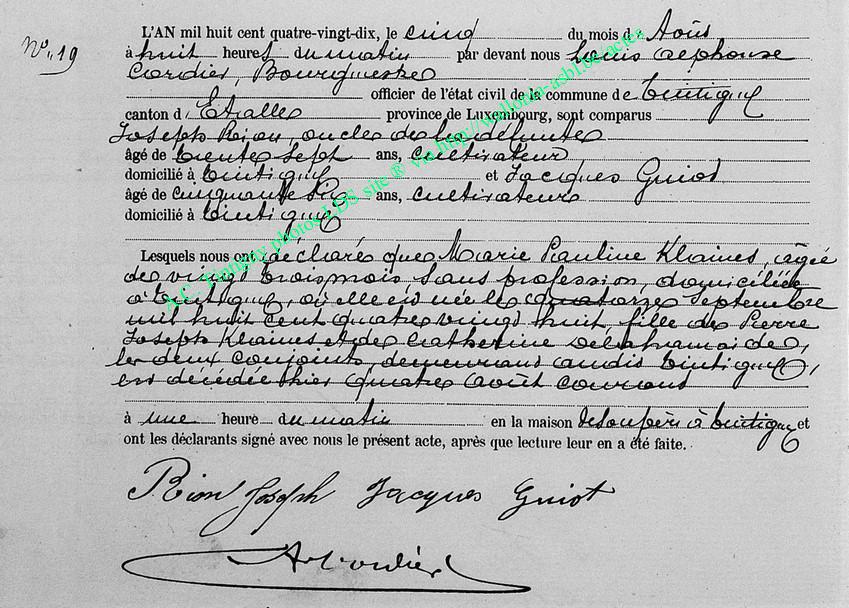 N° 19
L'AN mil huit cent quatre-vingt-dix, le cinq du mois d Août
à huit heures du matin par devant nous Louis Alphonse
Cordier, Bourgmestre
officier de l'état civil de la commune de Tintigny
canton d'Etalle province de Luxembourg, sont comparus
Joseph Rion, oncle de la défunte
âgé de trente sept ans, cultivateur
domicilié à Tintigny et Jacques Guiot
âgé de cinquante six ans, cultivateur
domicilié à Tintigny
Lesquels nous ont déclaré que Marie Pauline Klaines, âgée
de vingt trois mois sans profession, domiciliée
à Tintigny, où elle est née le quatorze Septembre
mil huit cent quatre vingt huit, fille de Pierre
Joseph Klaines et de Catherine
les deux conjoints demeurant audit Tintigny,
est décédée hier quatre août courant
à une heure du matin en la maison de son père à Tintigny et
ont les déclarants signé avec nous le présent acte, après que lecture leur en a été faite.
Rion Joseph Jacques Guiot
A Cordier
A.C. Tintigny photos LDS site ® via http://wallonia-asbl.be/actes